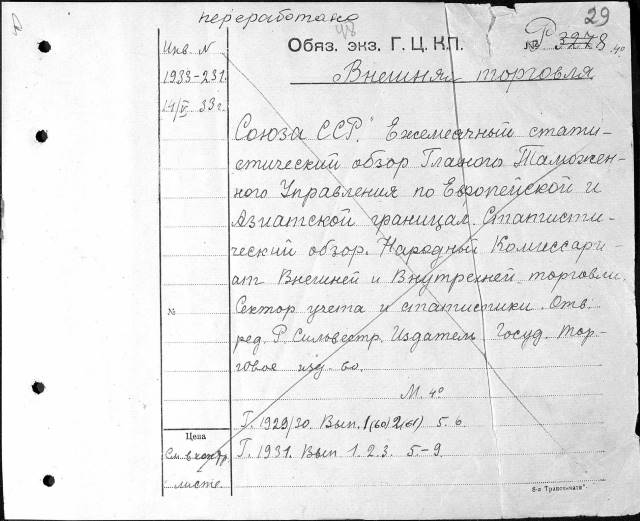 переработано
29
Обяз. экз. Г. Ц. К.П.
№ Р 3278 4º
Инв. N
1933-231.
14/V 33г.
Внешняя торговля
Союза ССР." Ежемесячный стати-
стический обзор Главного Таможен-
ного Управления по Европейской и
Азиатской границам. Статисти-
ческий обзор. Народный Комиссари-
ат Внешней и Внутренней торговли.
Сектор учета и статистики. Отв.
ред. Р. Сильвестр. Издатель Госуд. Тор-
говое изд-во.
№
М. 4º
Г. 1929/30. Вып. 1(60) 2(61) 5. 6.
Г. 1931. Вып 1. 2. 3. 5.-9.
Цена
См. в контр.
листе.
8-я Транспечати"